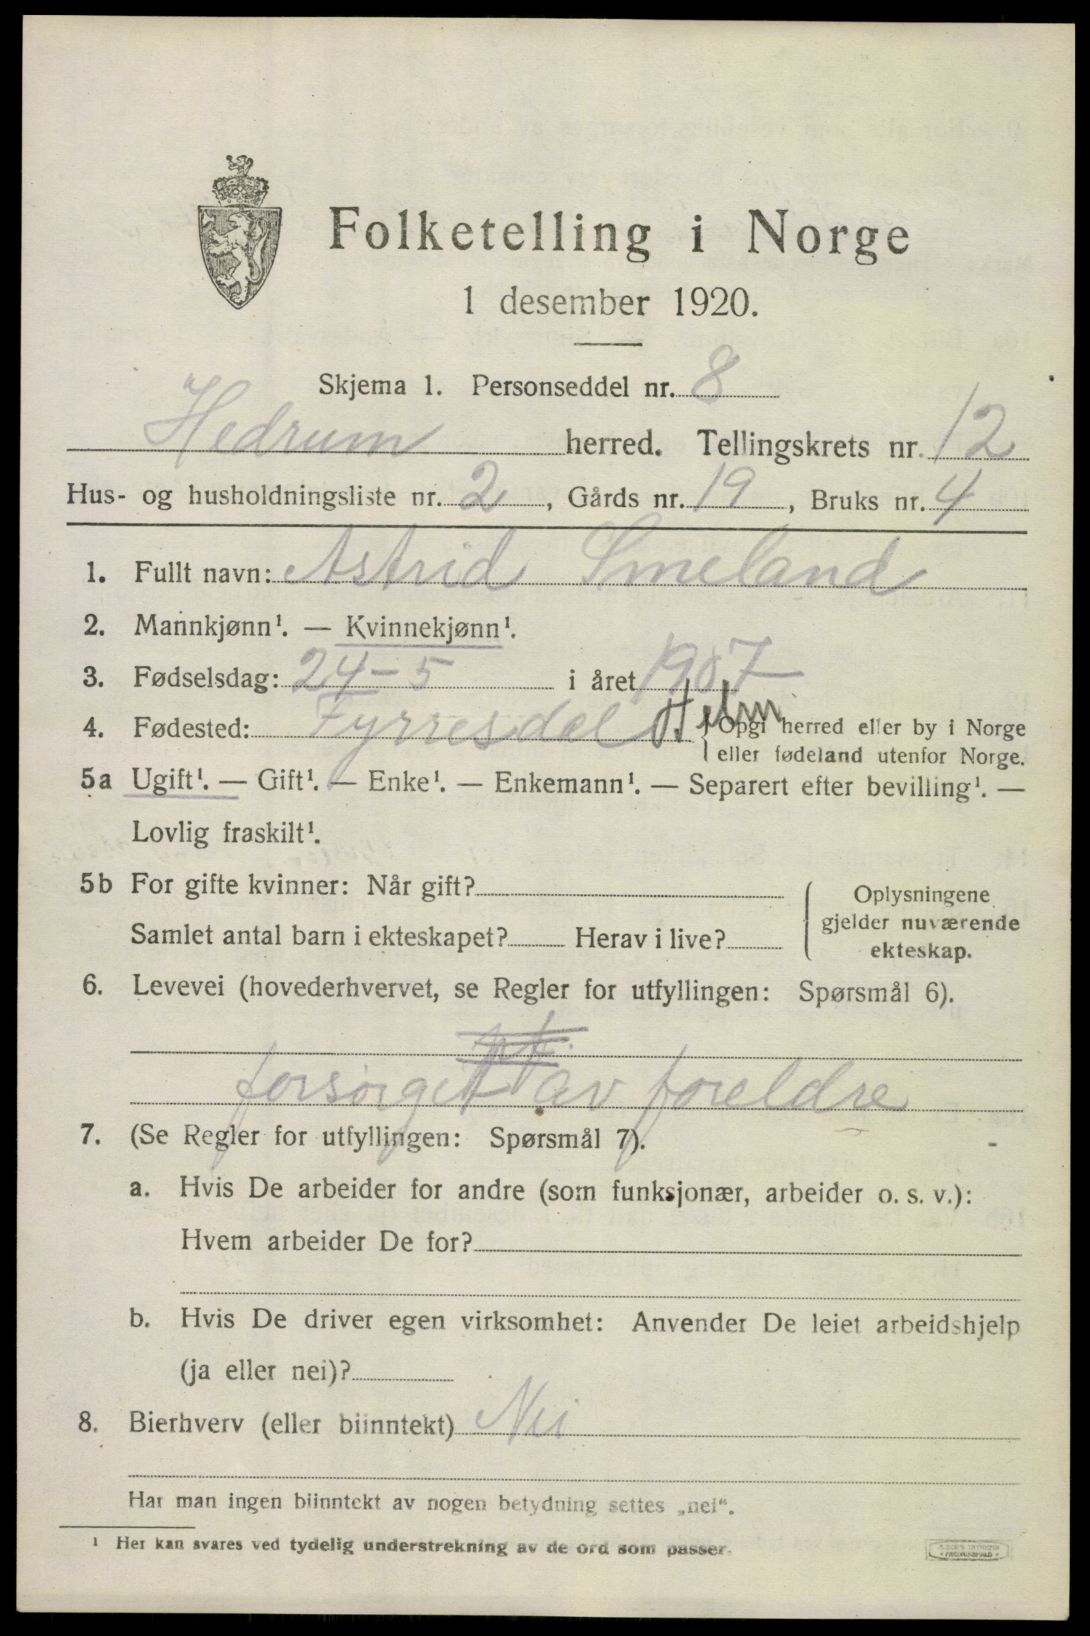 Folketelling i Norge
1 desember 1920.
Skjema 1. Personseddel nr. 8
Hedrum herred. Tellingskrets nr. 12
Hus- og husholdningsliste nr. 2, Gårds nr. 19, Bruks nr. 4
1. Fullt navn: Astrid Smeland
2. Mannkjønn¹. — Kvinnekjønn¹.
3. Fødselsdag: 24-5 i året 1907
4. Fødested: Fyrresdal {Opgi herred eller by i Norge
eller fødeland utenfor Norge.
5a Ugift¹. — Gift¹. — Enke¹. — Enkemann¹. — Separert efter bevilling¹. —
Lovlig fraskilt¹.
5b For gifte kvinner: Når gift?
Samlet antal barn i ekteskapet? Herav i live?
{ Oplysningene
gjelder nuværende
ekteskap.
6. Levevei (hovederhvervet, se Regler for utfyllingen: Spørsmål 6).
forsørget av foreldre
7. (Se Regler for utfyllingen: Spørsmål 7).
a. Hvis De arbeider for andre (som funksjonær, arbeider o. s. v.):
Hvem arbeider De for?
b. Hvis De driver egen virksomhet: Anvender De leiet arbeidshjelp
(ja eller nei)?
8. Bierhverv (eller biinntekt) Nei
Har man ingen biinntekt av nogen betydning settes „nei“.
¹ Her kan svares ved tydelig understrekning av de ord som passer.